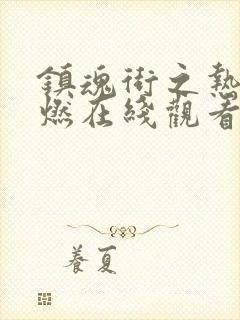 鎮魂街之熱
燃在綫觀看
養夏